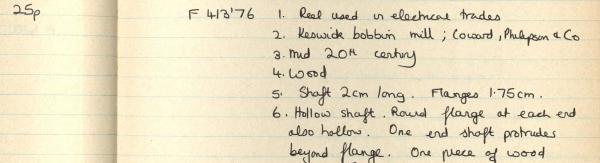 25p F 413'76 1. Reel used in electrical trades
2. Keswick bobbin mill ; Coward, Philipson & Co
3. Mid 20th century
4. Wood
5. Shaft 2cm long. Flanges 1.75cm.
6. Hollow shaft. Round flange at each end
also hollow. One end shaft protrudes
beyond flange. One piece of wood